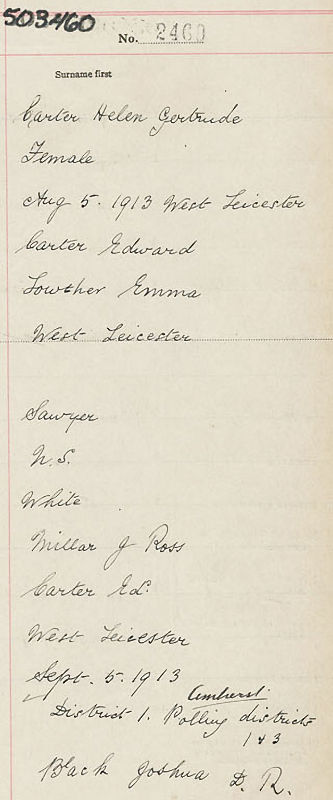 503460
No. 2460
Surname first
Carter Helen Gertrude
Female
Aug 5. 1913 West Leicester
Carter Edward
Lowther Emma
West Leicester
Sawyer
N.S.
White
Millar J Ross
Carter Ed.
West Leicester
Sept. 5. 1913
Amherst
District 1. Polling districts
1 & 3
Black Joshua D. R.